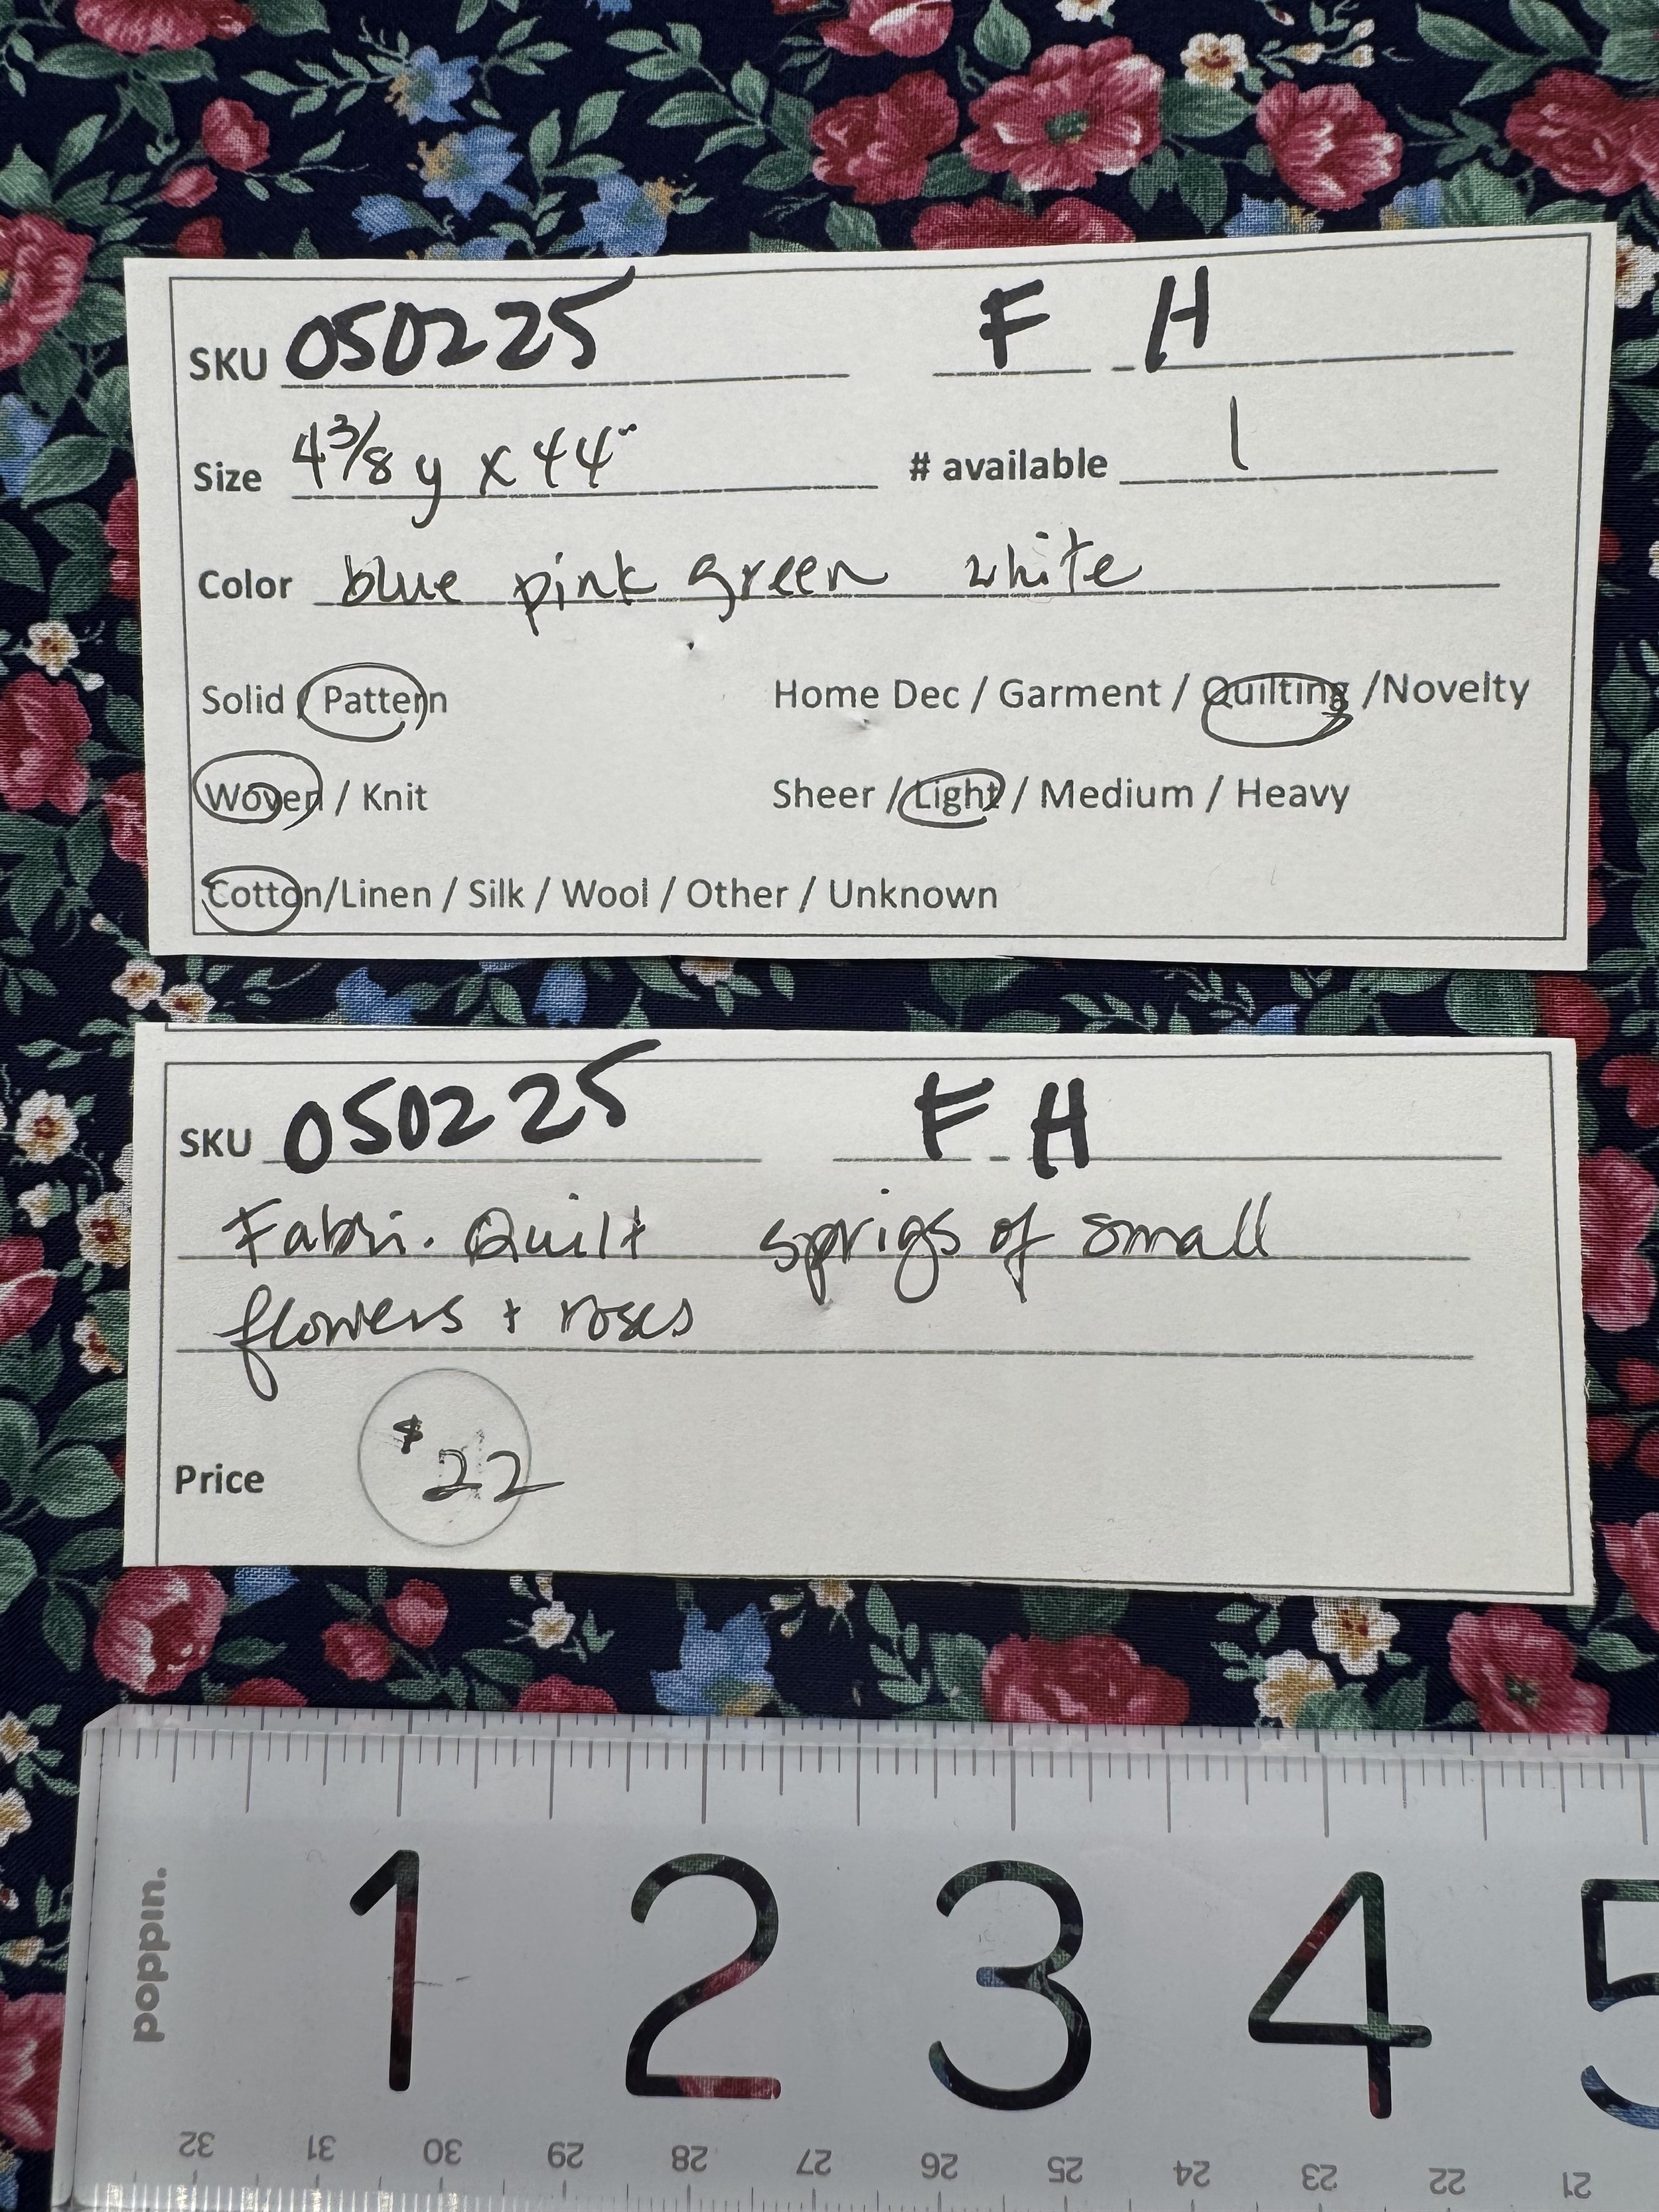 SKU 050225 F - H
Size 4 3/8 y x 44" # available 1
Color blue pink green white
Solid / Pattern Home Dec / Garment / Quilting /Novelty
Woven / Knit Sheer / Light / Medium / Heavy
Cotton/Linen / Silk / Wool / Other / Unknown
SKU 050225 F - H
Fabri. Quilt sprigs of small
flowers + roses
Price $22
poppin.
1 2 3 4 5
32 31 30 29 28 27 26 25 24 23 22 21